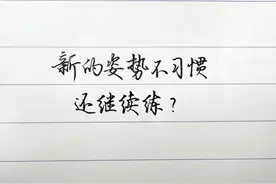 新的姿势不习惯
还继续练？